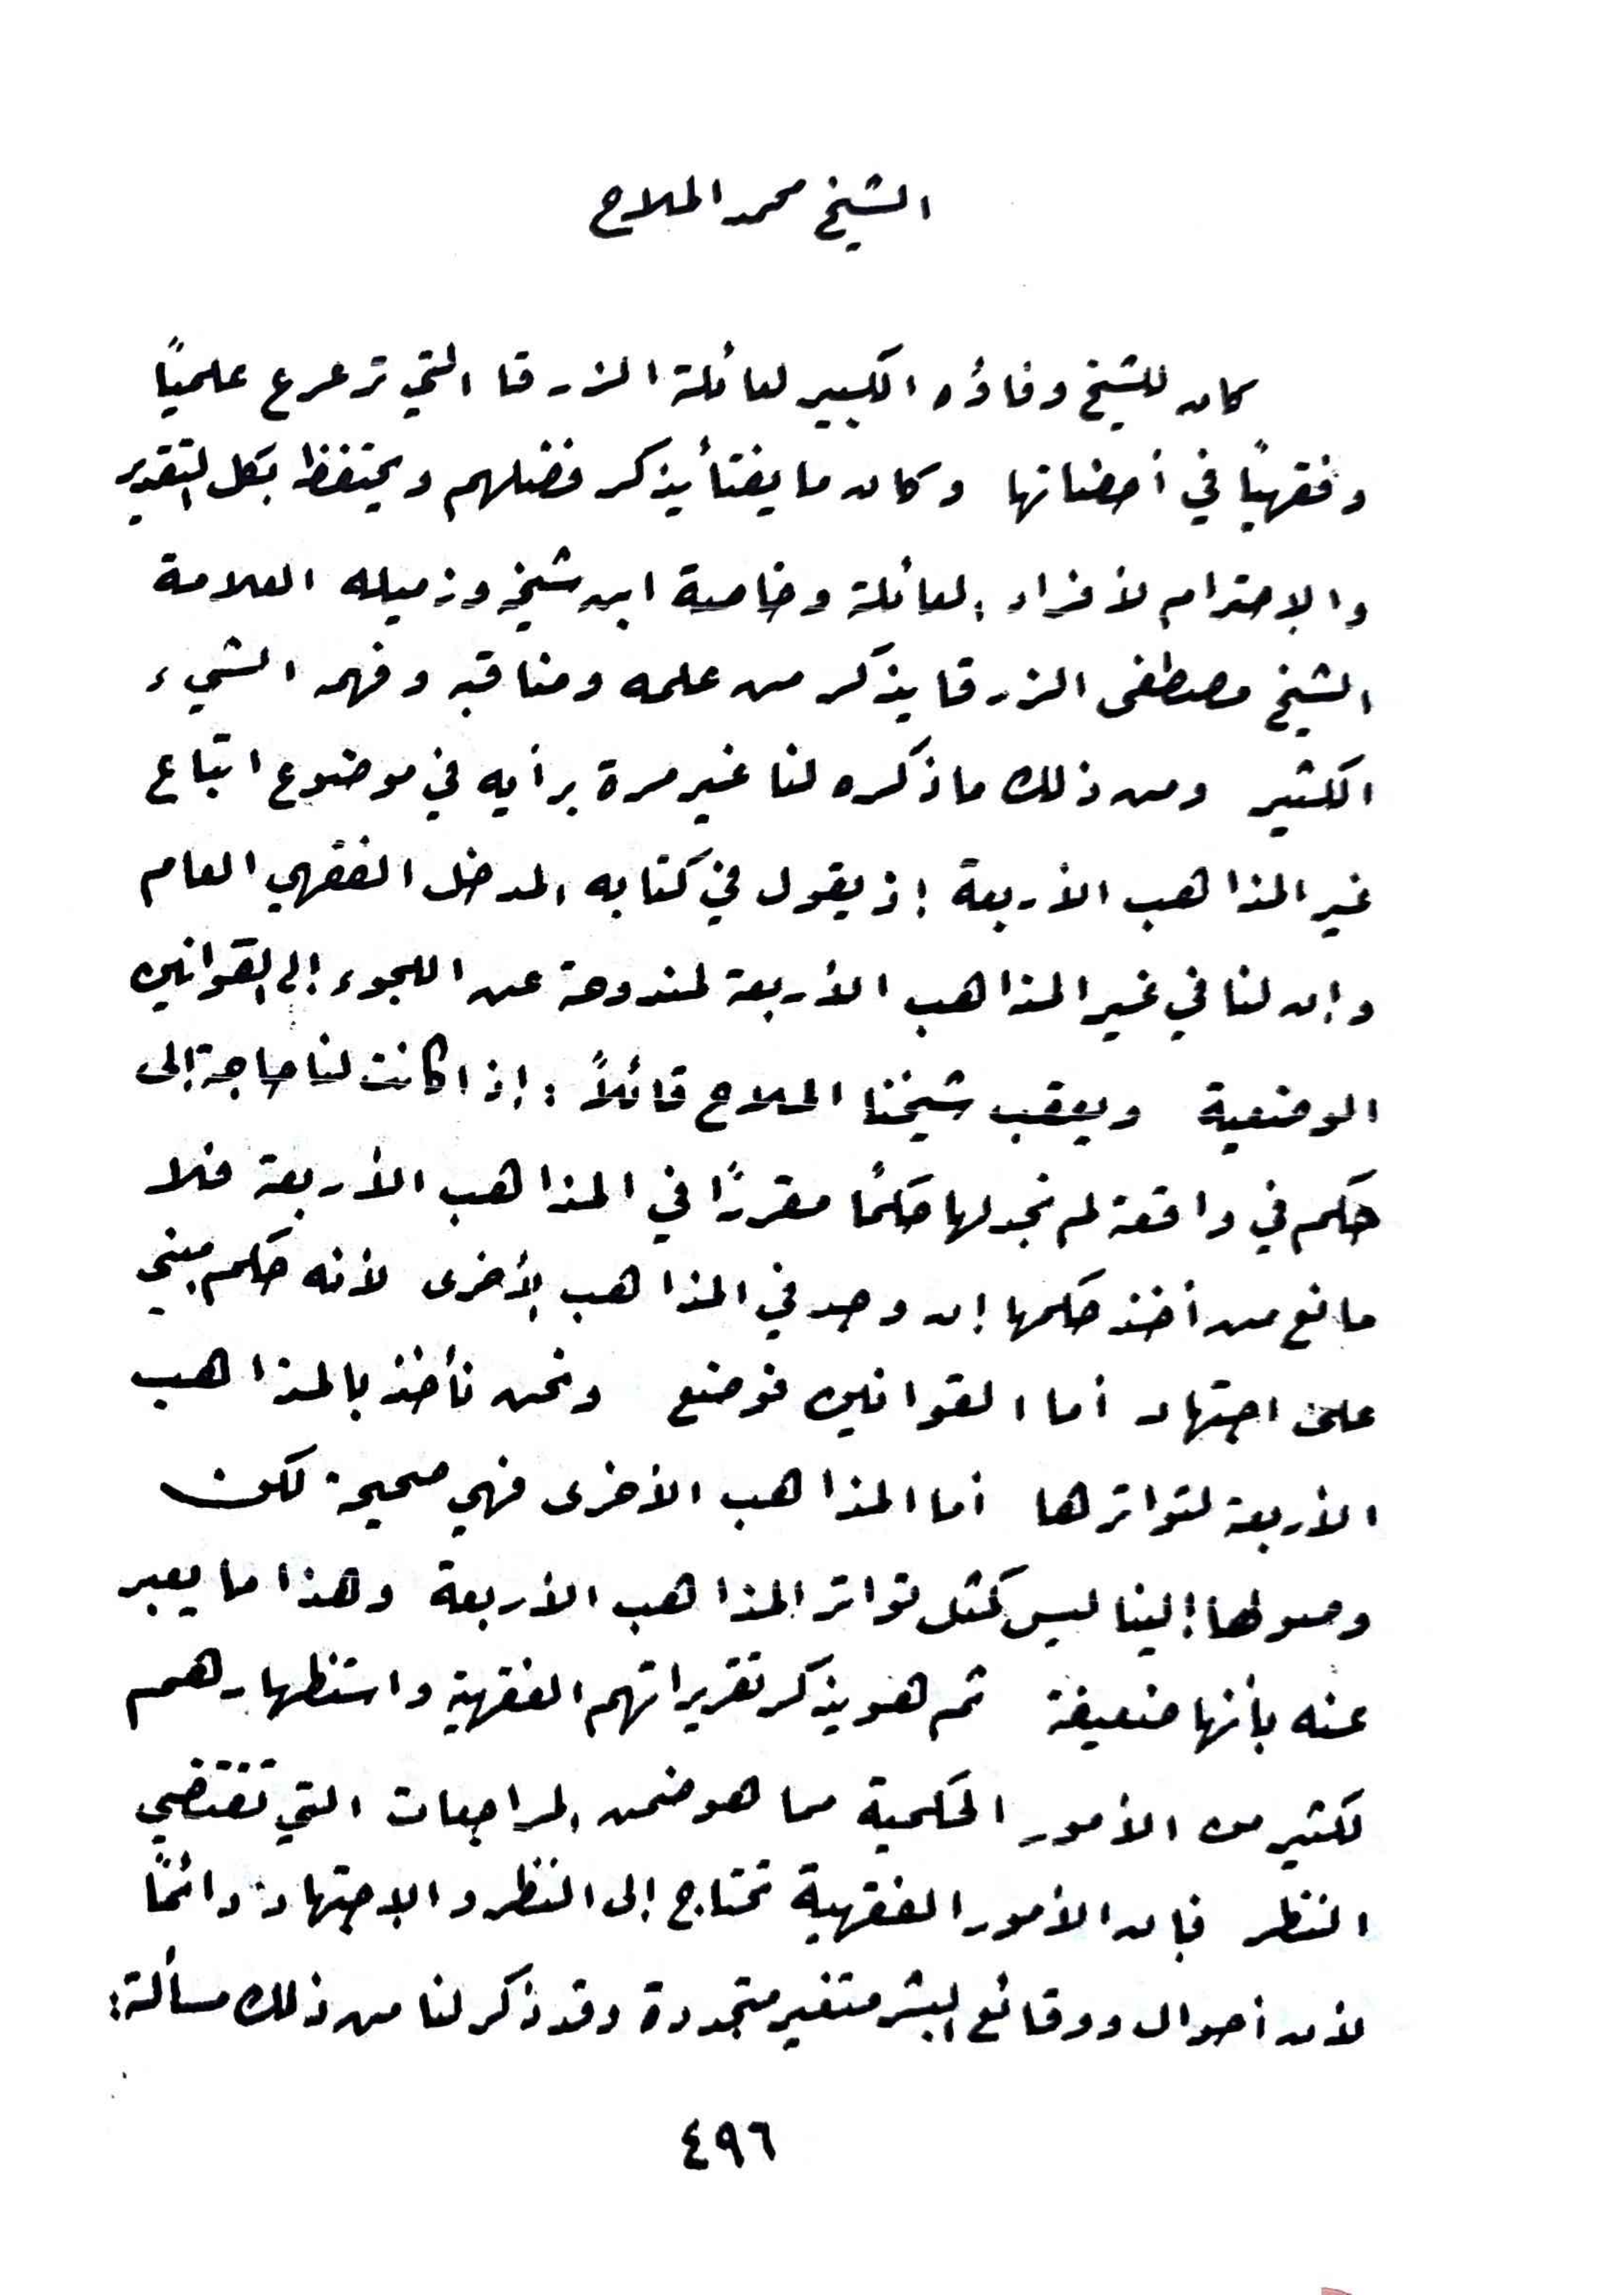 الشيخ محمد الملاح
كان للشيخ وفاؤه الكبير لعائلة الزرقا التي ترعرع علميًا
وفقهيًا في أحضانها وكان ما يفتأ يذكر فضلهم ويحتفظ بكل التقدير
والإحترام لأفراد العائلة وخاصة ابن شيخه وزميله العلامة
الشيخ مصطفى الزرقا يذكر من علمه ومناقبه وفهمه الشيء
الكثير ومن ذلك ما ذكره لنا غير مرة برأيه في موضوع اتباع
غير المذاهب الأربعة إذ يقول في كتابه المدخل الفقهي العام
وإن لنا في غير المذاهب الأربعة لمندوحة عن اللجوء إلى القوانين
الوضعية ويعقب شيخنا الملاح قائلاً : إذا كانت لنا حاجة إلى
حكم في واقعة لم نجد لها حكمًا مقررًا في المذاهب الأربعة فلا
مانع من أخذ حكمها إن وجد في المذاهب الأخرى لأنه حكم مبني
على اجتهاد أما القوانين فوضع ونحن نأخذ بالمذاهب
الأربعة لتواترها أما المذاهب الأخرى فهي صحيحة لكن
وصولها إلينا ليس كمثل تواتر المذاهب الأربعة وهذا ما يعبر
عنه بأنها ضعيفة ثم هو يذكر تقريراتهم الفقهية واستظهارهم
لكثير من الأمور الحكمية مما هو ضمن المراجعات التي تقتضي
النظر فإن الأمور الفقهية تحتاج إلى النظر والإجتهاد دائمًا
لأن أحوال ووقائع البشر متغير متجددة وقد ذكر لنا من ذلك مسألة :
٤٩٦